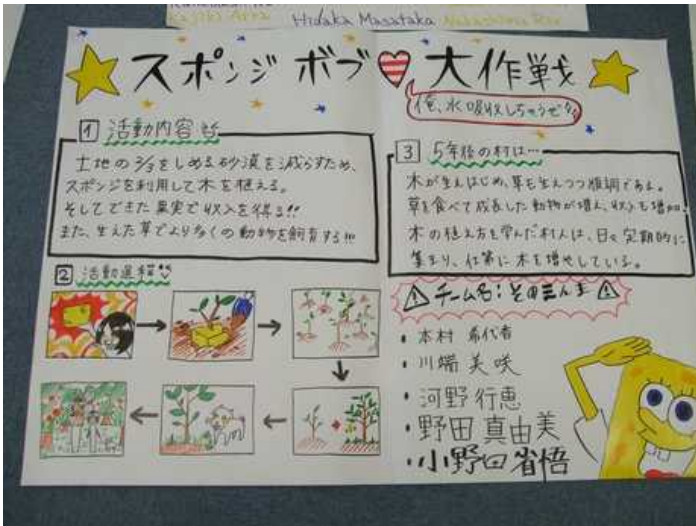 Hidaka Masataka
スポンジ ボブ 大作戦
俺、水吸収しちゃうぜ
1 活動内容
土地の2/3をしめる砂漠を減らすため、
スポンジを利用して木を植える。
そしてできた果実で収入を得る!!
また、生えた草でより多くの動物を飼育する!!!
2 活動過程
3 5年後の村は…
木が生えはじめ、草も生えつつ順調である。
草を食べて成長した動物が増え、収入も増加!
木の植え方を学んだ村人は、日々定期的に
集まり、仕事に木を増やしている。
チーム名:そのまんま
・本村 希代香
・川端 美咲
・河野 行恵
・野田 真由美
・小野田 省悟